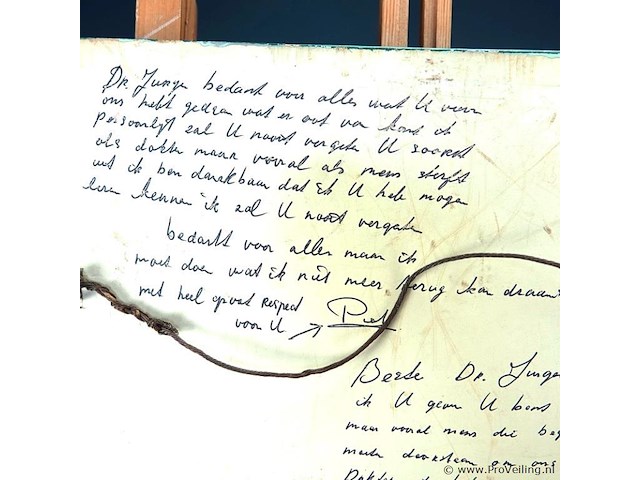 Dr. Jurgen bedankt voor alles wat U voor
ons hebt gedaan wat er oot van komt ik
Persoonlijt zal U nooit vergeten U
als dokter maar vooral als mens
ik ben dankbaar dat ik U heb mogen
leren kennen ik zal U nooit vergeten
bedankt voor alles maar ik
moet doen wat ik niet meer terug kan draaien
met heel groot Respect
voor U
Beste Dr. Jurgen
ik U geven U bent
maar vooral mens die
ons